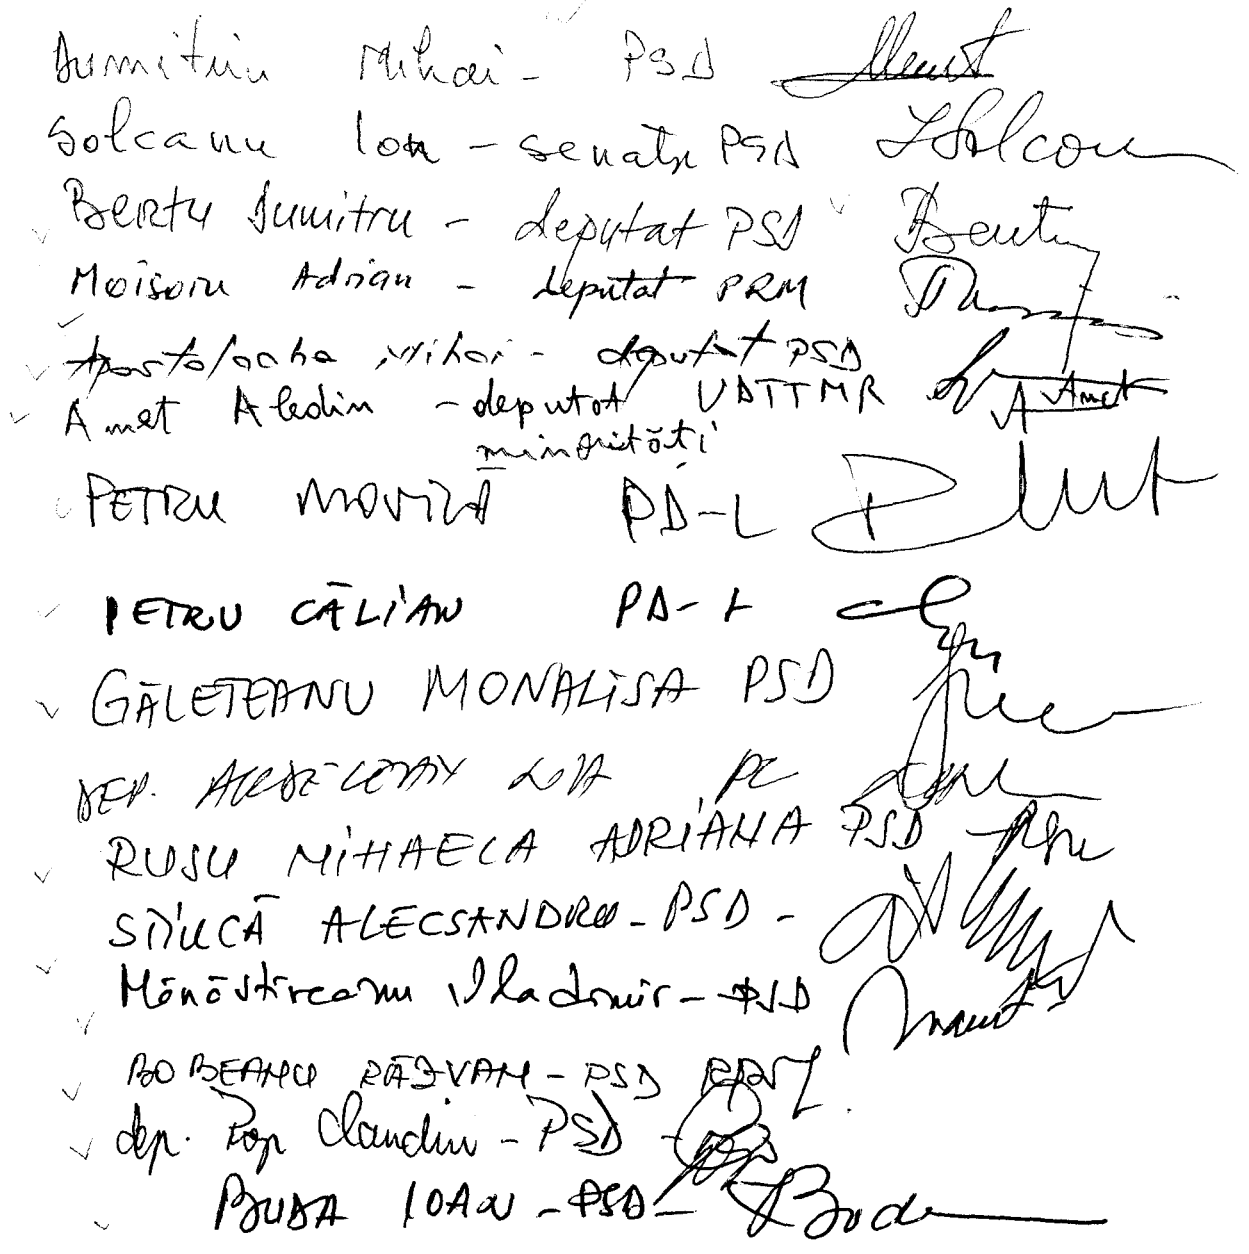 Dumitriu Mihai - PSD
Solcanu Ion - senator PSD
Bentu Dumitru - deputat PSD
Moisoiu Adrian - deputat PRM
Apostolache Mihai - deputat PSD
Amet Aledin - deputat UDTTMR A Amet
minorități
PETRU MOVILĂ PD-L
PETRU CĂLIAN PD-L
GĂLEȚEANU MONALISA PSD
DEP. PC
RUSU MIHAELA ADRIANA PSD
ȘTIUCĂ ALECSANDRU - PSD -
Mănăstireanu Vladimir - PSD
BOBEANU RĂZVAN - PSD
dep. Pop Claudiu - PSD -
BUDA IOAN - PSD -